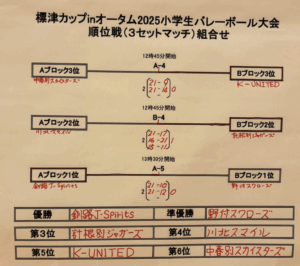 標津カップinオータム2025小学生バレーボール大会
順位戦(3セットマッチ)組合せ
12時45分開始
A-4
Aブロック3位
Bブロック3位
中春別スカイスターズ
2 21-9 0
21-14
K-UNITED
12時45分開始
B-4
Aブロック2位
Bブロック2位
川北スマイル
2 21-17 1
16-21
15-11
計根別ジャガーズ
13時30分開始
A-5
Aブロック1位
Bブロック1位
釧路J-Spirits
2 21-10 0
21-12
野付スワローズ
優勝 釧路J-Spirits 準優勝 野付スワローズ
第3位 計根別ジャガーズ 第4位 川北スマイル
第5位 K-UNITED 第6位 中春別スカイスターズ